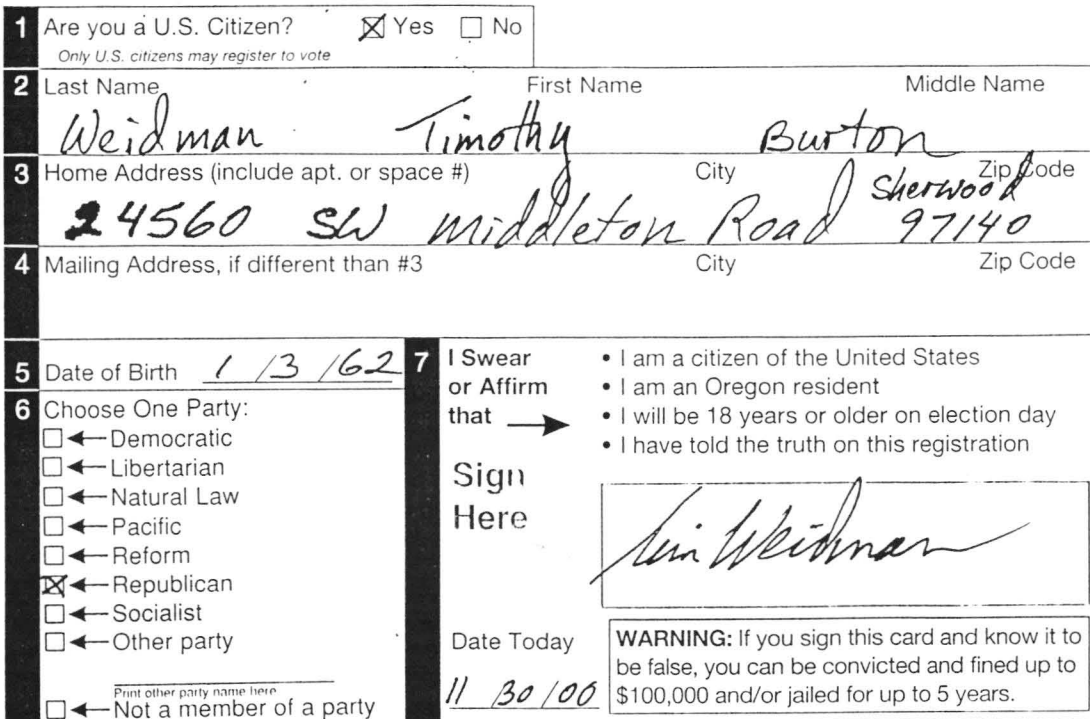 1 Are you a U.S. Citizen? ☒ Yes ☐ No
Only U.S. citizens may register to vote
2 Last Name First Name Middle Name
Weidman Timothy Burton
3 Home Address (include apt. or space #) City Zip Code
Sherwood
24560 SW Middleton Road 97140
4 Mailing Address, if different than #3 City Zip Code
5 Date of Birth 1/3/62
6 Choose One Party:
☐ ←Democratic
☐ ←Libertarian
☐ ←Natural Law
☐ ←Pacific
☐ ←Reform
☒ ←Republican
☐ ←Socialist
☐ ←Other party
Print other party name here
☐ ←Not a member of a party
7 I Swear
or Affirm
that →
• I am a citizen of the United States
• I am an Oregon resident
• I will be 18 years or older on election day
• I have told the truth on this registration
Sign
Here
Tim Weidman
Date Today
11/30/00
WARNING: If you sign this card and know it to
be false, you can be convicted and fined up to
$100,000 and/or jailed for up to 5 years.